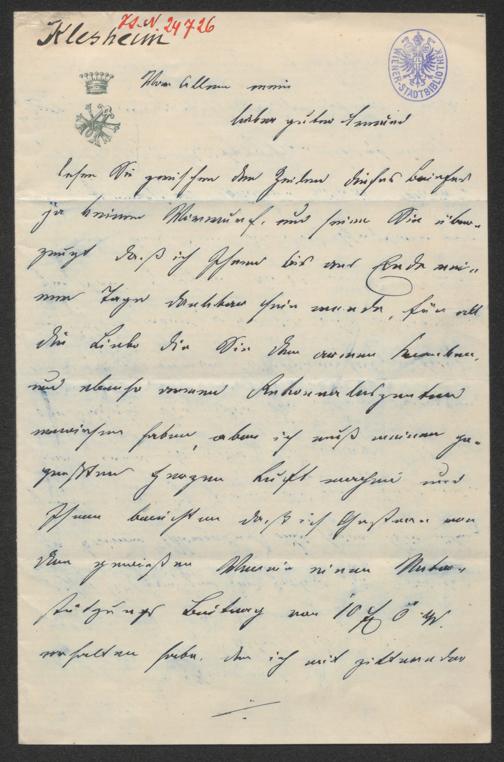 I.N. 24726
Klesheim
WIENER-STADTBIBLIOTHEK
Vor Allem mein
lieber guter Freund
lesen Sie zwischen den Zeilen dieses Briefes
ja keinen Vorwurf, und seien Sie über-
zeugt daß ich Ihnen bis ans Ende mei-
ner Tage dankbar sein werde, für all
die Liebe die Sie dem armen Kranken,
und ebenso armen
erwiesen haben, aber ich muß meinem ge-
preßten Herzen Luft machen und
Ihnen berichten daß ich Gestern von
dem gewissen Verein einen Unter-
stützungs Beitrag von 10 f ö. W.
erhalten habe, den ich mit zitternder